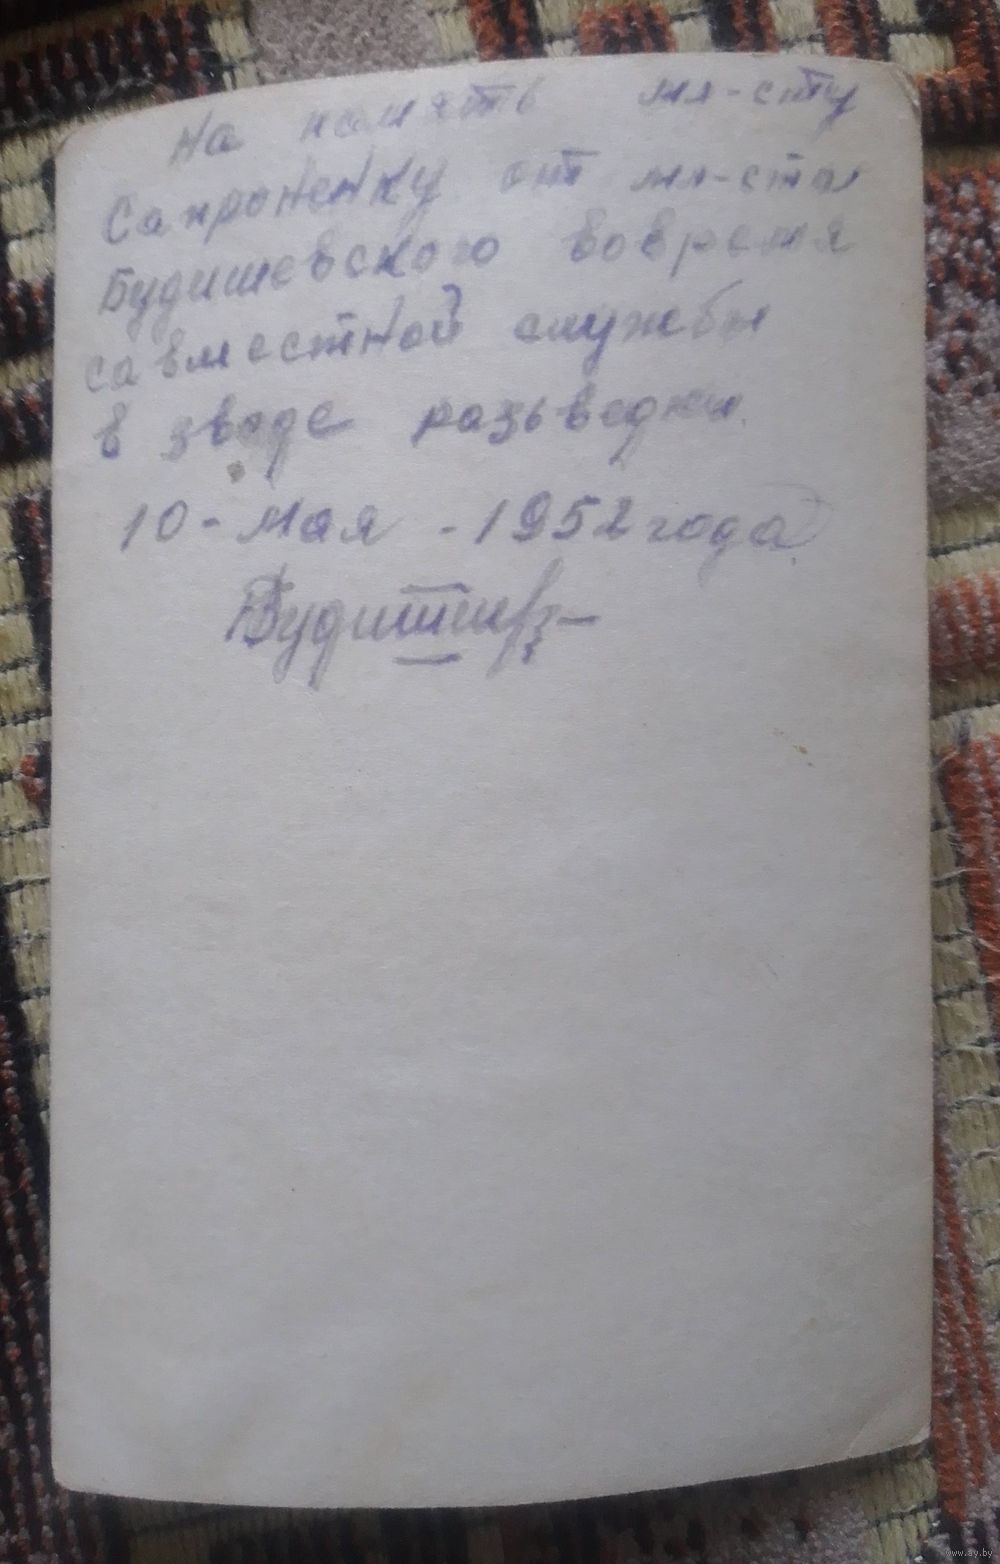 На память мл-сту
Сапроненку от мл-ста
Будишевского вовремя
савместной службы
в зводе разьведки.
10-Мая-1952 года
www.ay.by